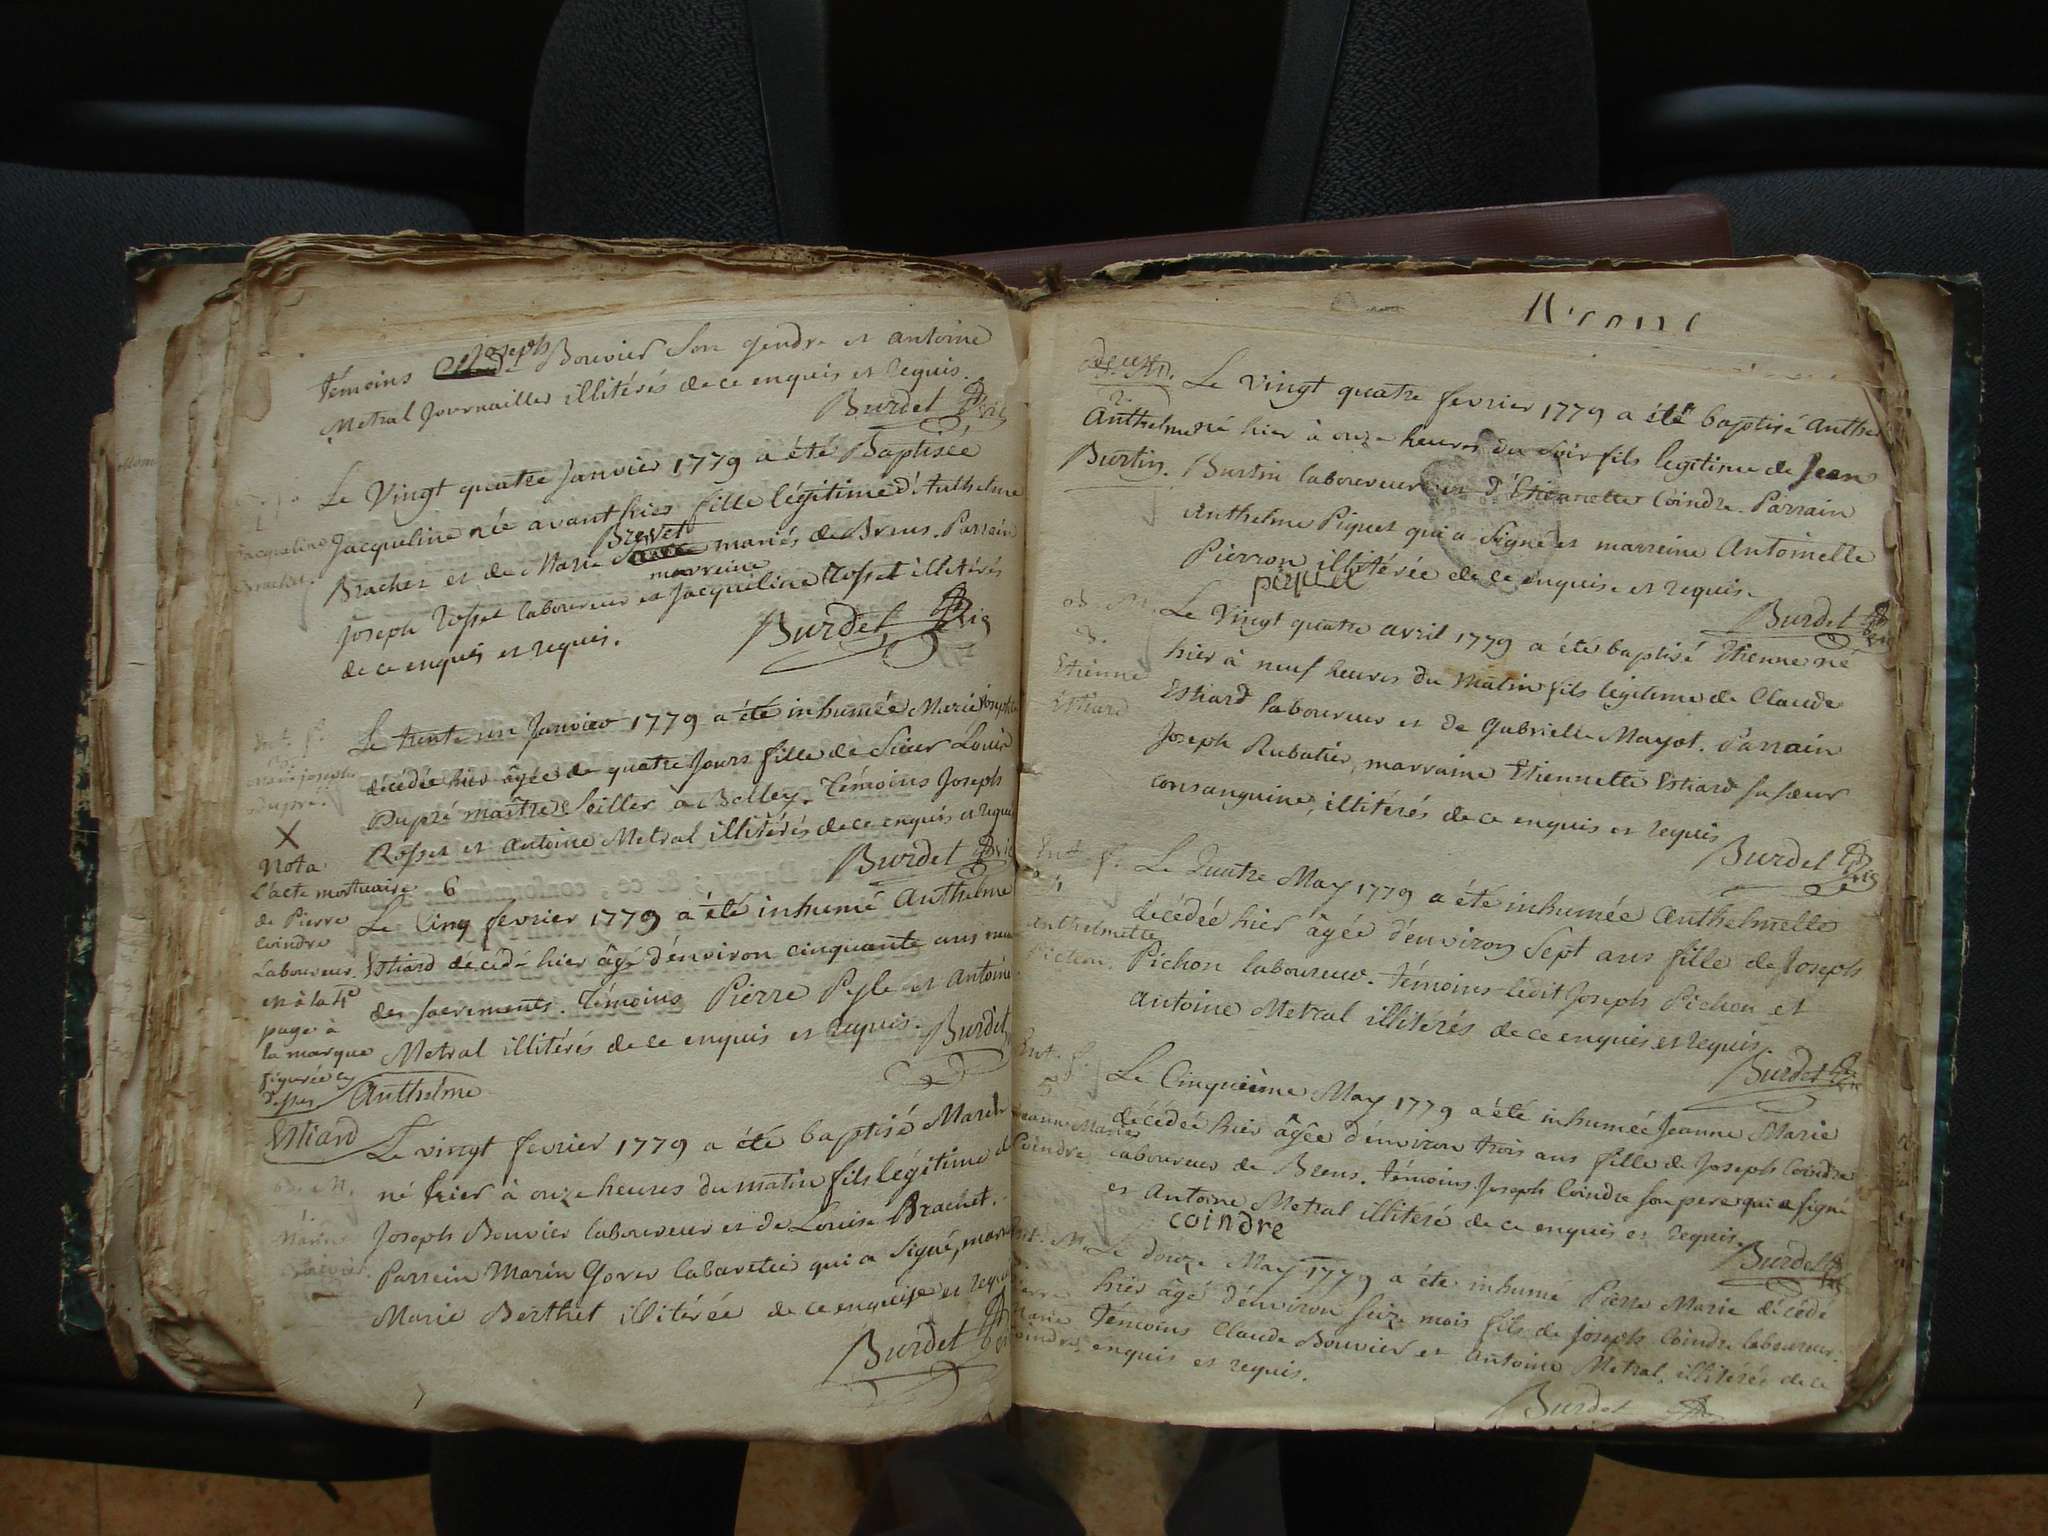 témoins Joseph Bouvier Son gendre et antoine
Metral Journaillier illitérés de ce enquis et requis.
Burdet
Le Vingt quatre Janvier 1779 a été Baptisée
Jacqueline
Jacqueline née avant hier fille légitime d'Anthelme
Brachet.
Brevet
Brachet et de Marie mariés de Brens. Parrain
marreine
Joseph Rosset laboureur et Jacqueline Rosset illitérés
de ce enquis et requis.
Burdet
Le trente un Janvier 1779 a été inhumée Marie Josephe
décédée hier âgée de quatre Jours fille de Sieur Louis
marie josephe
Dupré
Dupré maître Sellier à Belley. Témoins Joseph
Rosset et Antoine Metral illitérés de ce enquis et requis
Burdet
X
Nota
L'acte mortuaire
de Pierre
Coindre
Laboureur
est à la 4e
page à
la marque
figurée cy
dessus
6
Le Cinq fevrier 1779 a été inhumé Anthelme
Estiard décédé hier âgé d'environ cinquante ans muni
des sacrements. Témoins Pierre Peyle et Antoine
Metral illitérés de ce enquis et requis.
Burdet
Anthelme
Estiard
Le vingt fevrier 1779 a été baptisé Marin
né hier à onze heures du matin fils légitime de
Joseph Bouvier laboureur et de Louise Brachet.
Marin
Bouvier
Parrein Marin Goyer cabaretié qui a signé, marr
Marie Berthet illitérée de ce enquise et requise
Burdet
Le Vingt quatre fevrier 1779 a été baptisé Anthel
Anthelme
né hier à onze heures du soir fils legitime de Jean
Burtin.
Burtin laboureur et d'Etiennette Coindre. Parrain
Anthelme Piquet qui a Signé et marreine Antoinette
Pierron illitérée de ce enquise et requise
piquet
Burdet
Le Vingt quatre avril 1779 a été baptisé Etienne né
3.
Etienne
Estiard
hier à neuf heures du Matin fils légitime de Claude
Estiard laboureur et de Gabrielle Mayot. Parrain
Joseph Rubatier, marraine Etiennette Estiard sa sœur
consanguine, illitérés de ce enquis et requis
Burdet
Le Quatre May 1779 a été inhumée Anthelmette
4
Anthelmette
Pichon.
décédée hier âgée d'environ Sept ans fille de Joseph
Pichon laboureur. témoins ledit Joseph Pichon et
Antoine Metral illitérés de ce enquis et requis.
Burdet
Le Cinquième May 1779 a été inhumée Jeanne Marie
5
Jeanne Marie
Coindre
décédée hier âgée d'environ trois ans fille de Joseph Coindre
laboureur de Brens. témoins Joseph Coindre son pere qui a signé
et Antoine Metral illitéré de ce enquis et requis.
coindre
Burdet
Le douze May 1779 a été inhumé Pierre Marie décédé
hier âgé d'environ seize mois fils de Joseph Coindre laboureur.
Témoins Claude Bouvier et Antoine Metral, illitérés de ce
enquis et requis.
Burdet